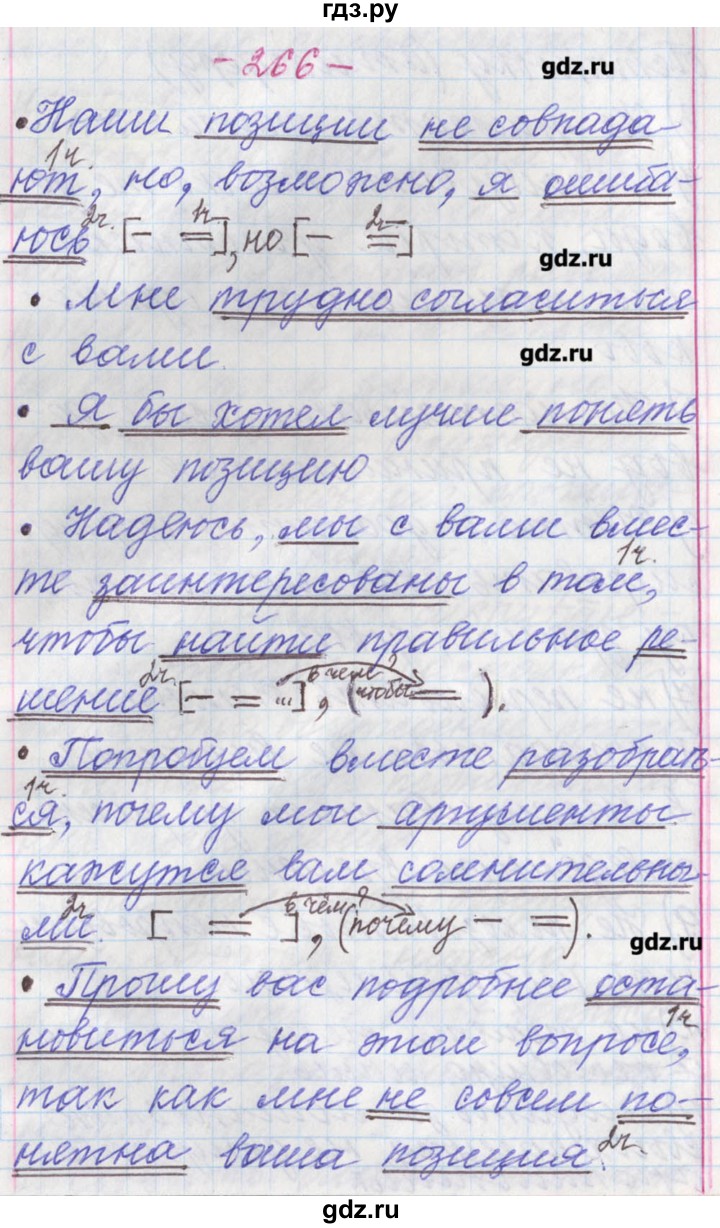 гдз.ру
- 266 -
gdz.ru
• Наши позиции не совпада-
1ч.
ют, но, возможно, я ошиба-
2ч. 1ч 2ч
юсь [- =], но [- =]
gdz.ru
• Мне трудно согласиться
с вами.
gdz.ru
• Я бы хотел лучше понять
вашу позицию
• Надеюсь, мы с вами вмес-
1ч.
те заинтересованы в том,
чтобы найти правильное ре-
2ч. в чём?
шение [- = ...], (чтобы =).
• Попробуем вместе разобрать-
1ч.
ся, почему мои аргументы
кажутся вам сомнительны-
2ч. в чём?
ми. [ = ], (почему - =).
gdz.ru
• Прошу вас подробнее оста-
1ч
новиться на этом вопросе,
так как мне не совсем по-
нятна ваша позиция. 2ч.
gdz.ru